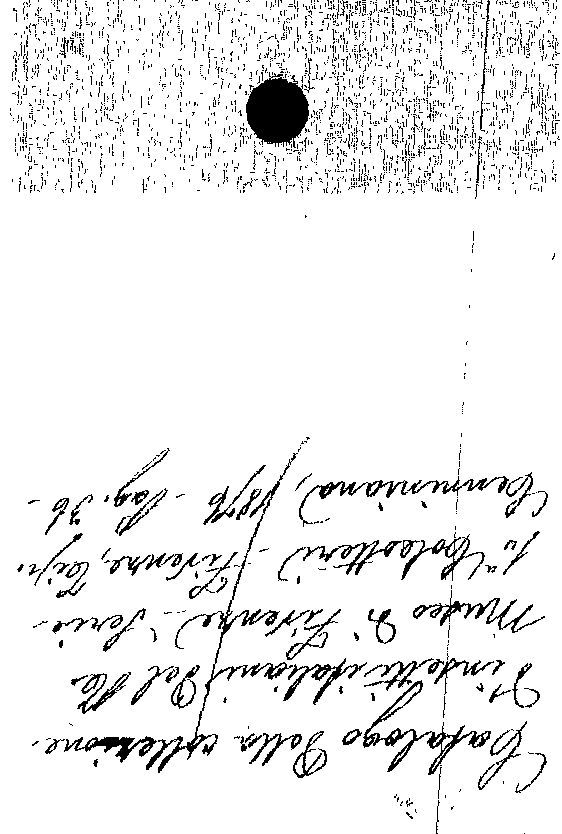 Catalogo della collezione
d'insetti italiani del R.
Museo di Firenze - Serie
1.a Coleotteri - Firenze, Tip.
Cenniniana, 1876 - Pag. 36 -